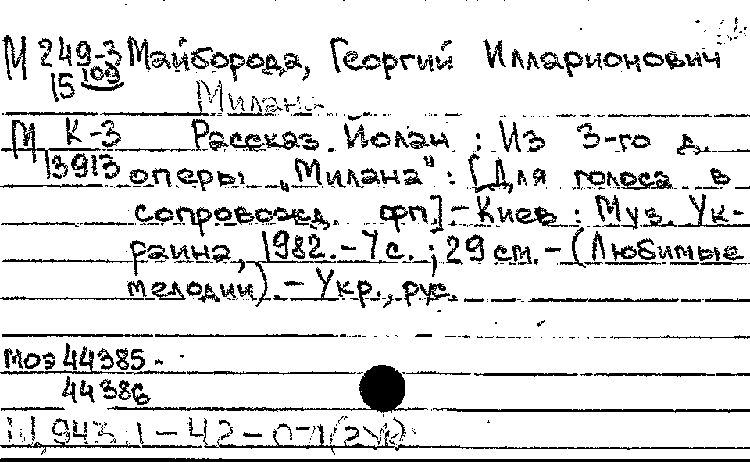 М 249-3 Майборода, Георгий Илларионович
15 109
Милана
М К-3 Рассказ Йолан : Из 3-го д.
13913 оперы „Милана“ : [Для голоса в
сопровожд. фп]. - Киев : Муз. Ук-
раина, 1982. - 7 с. ; 29 см. - (Любимые
мелодии). - Укр., рус.
Моэ 44385.
44386
943.1-42-071(2Ук)